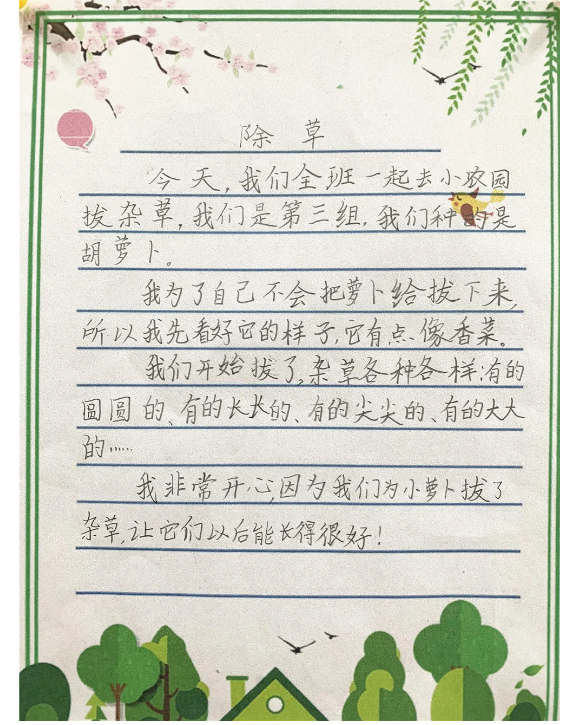 除草
今天,我们全班一起去小农园
拔杂草,我们是第三组,我们种的是
胡萝卜。
我为了自己不会把萝卜给拔下来,
所以我先看好它的样子,它有点像香菜。
我们开始拔了,杂草各种各样:有的
圆圆的、有的长长的、有的尖尖的、有的大大
的……
我非常开心,因为我们为小萝卜拔了
杂草,让它们以后能长得很好!